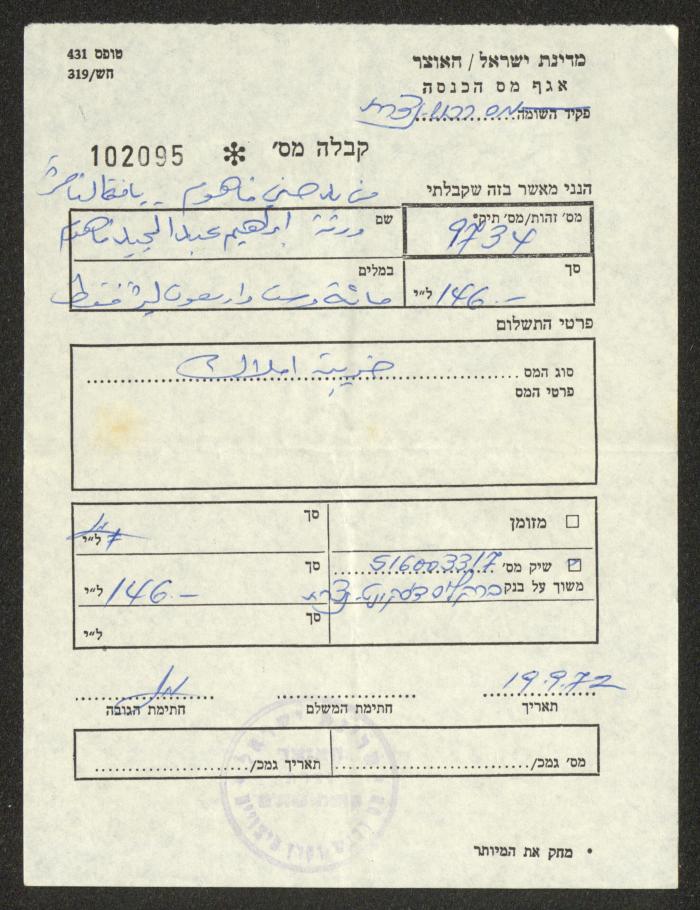 טופס 431
חש/319
מדינת ישראל / האוצר
אגף מס הכנסה
פקיד השומה מס רכוש נצרת
קבלה מס' * 102095
הנני מאשר בזה שקבלתי
מס' זהות/מס' תיק* 9734
שם ورثة ابراهيم عبد المجيد فاهوم
סך 146.- ל"י
במלים مائة وست واربعون ليرة فقط
פרטי התשלום
סוג המס ضريبة املاك
פרטי המס
מזומן
סך ל"י
שיק מס' 516003317
משוך על בנק ברקליס דיסקונט נצרת
סך 146.- ל"י
סך ל"י
19.9.72
תאריך
חתימת המשלם
חתימת הגובה
מס' גמכ/
תאריך גמכ/
* מחק את המיותר